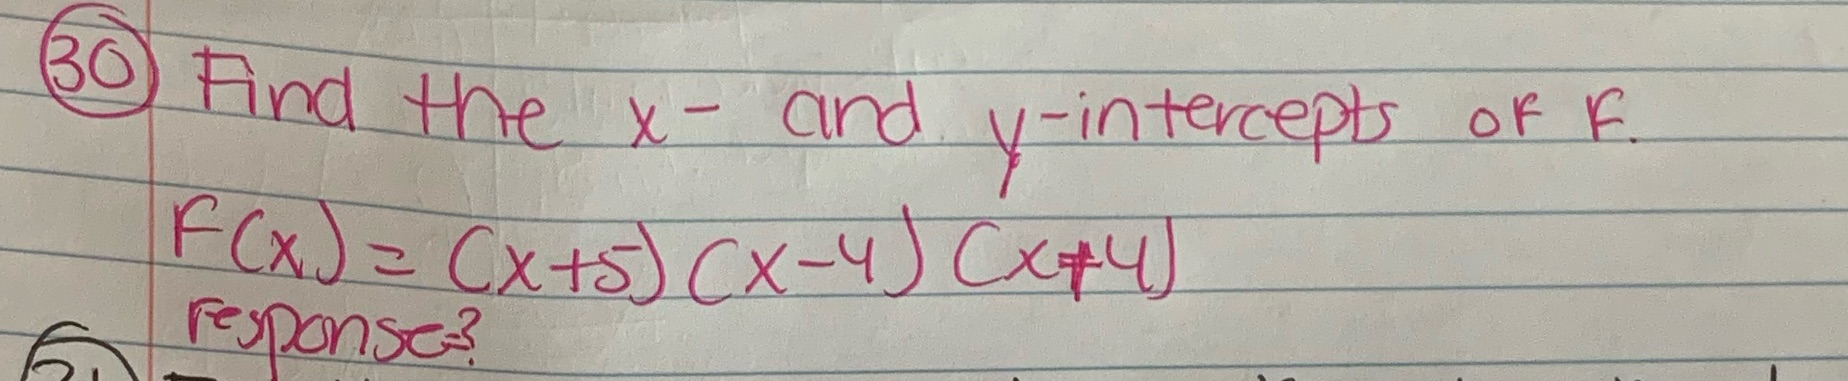 30 Find the x- and y-intercepts of F.
F(x) = (x+5)(x-4)(x+4)
response?